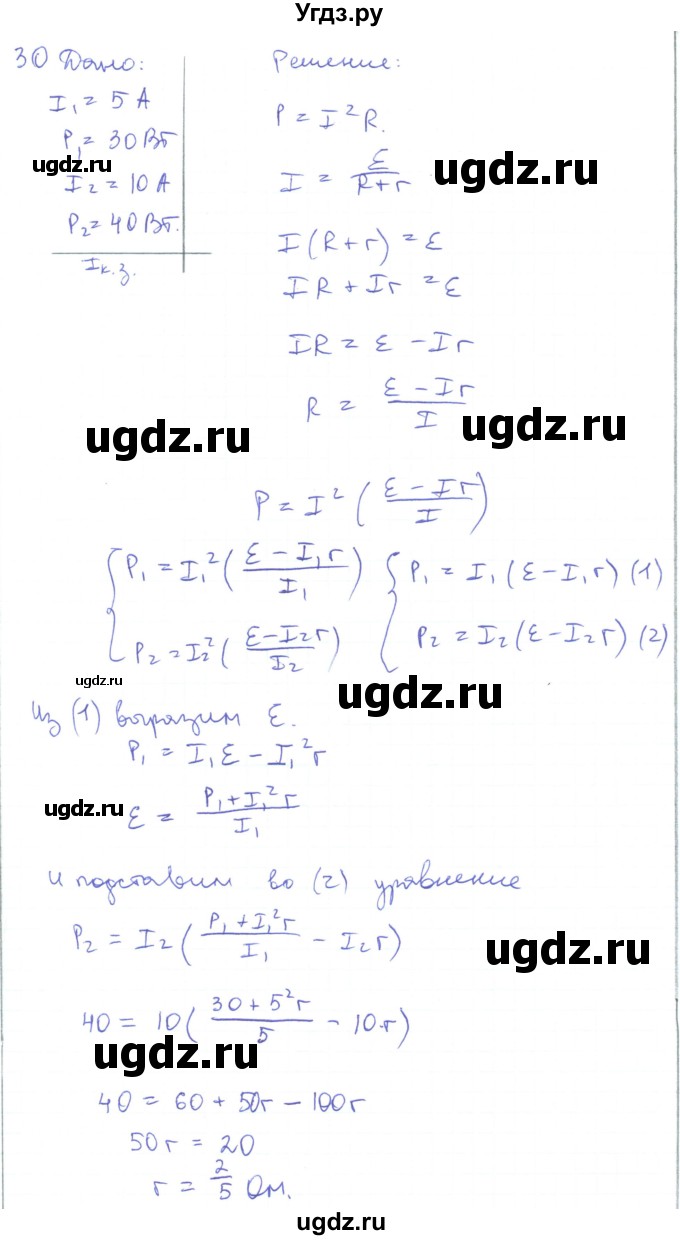 Угдз.ру
30 Дано:
I₁ = 5 А
P₁ = 30 Вт
ugdz.ru
I₂ = 10 А
P₂ = 40 Вт.
Iк.з.
Решение:
P = I²R.
ugdz.ru
I = ε/(R+r)
I(R+r) = ε
IR + Ir = ε
IR = ε − Ir
R = (ε − Ir)/I
ugdz.ru
ugdz.ru
P = I²((ε − Ir)/I)
P₁ = I₁²((ε − I₁r)/I₁) P₁ = I₁(ε − I₁r) (1)
P₂ = I₂²((ε − I₂r)/I₂) P₂ = I₂(ε − I₂r) (2)
ugdz.ru
ugdz.ru
Из (1) выразим ε.
P₁ = I₁ε − I₁²r
ugdz.ru
ε = (P₁ + I₁²r)/I₁
и подставим во (2) уравнение
P₂ = I₂((P₁ + I₁²r)/I₁ − I₂r)
ugdz.ru
40 = 10((30 + 5²r)/5 − 10·r)
ugdz.ru
40 = 60 + 50r − 100r
50r = 20
r = 2/5 Ом.
ugdz.ru